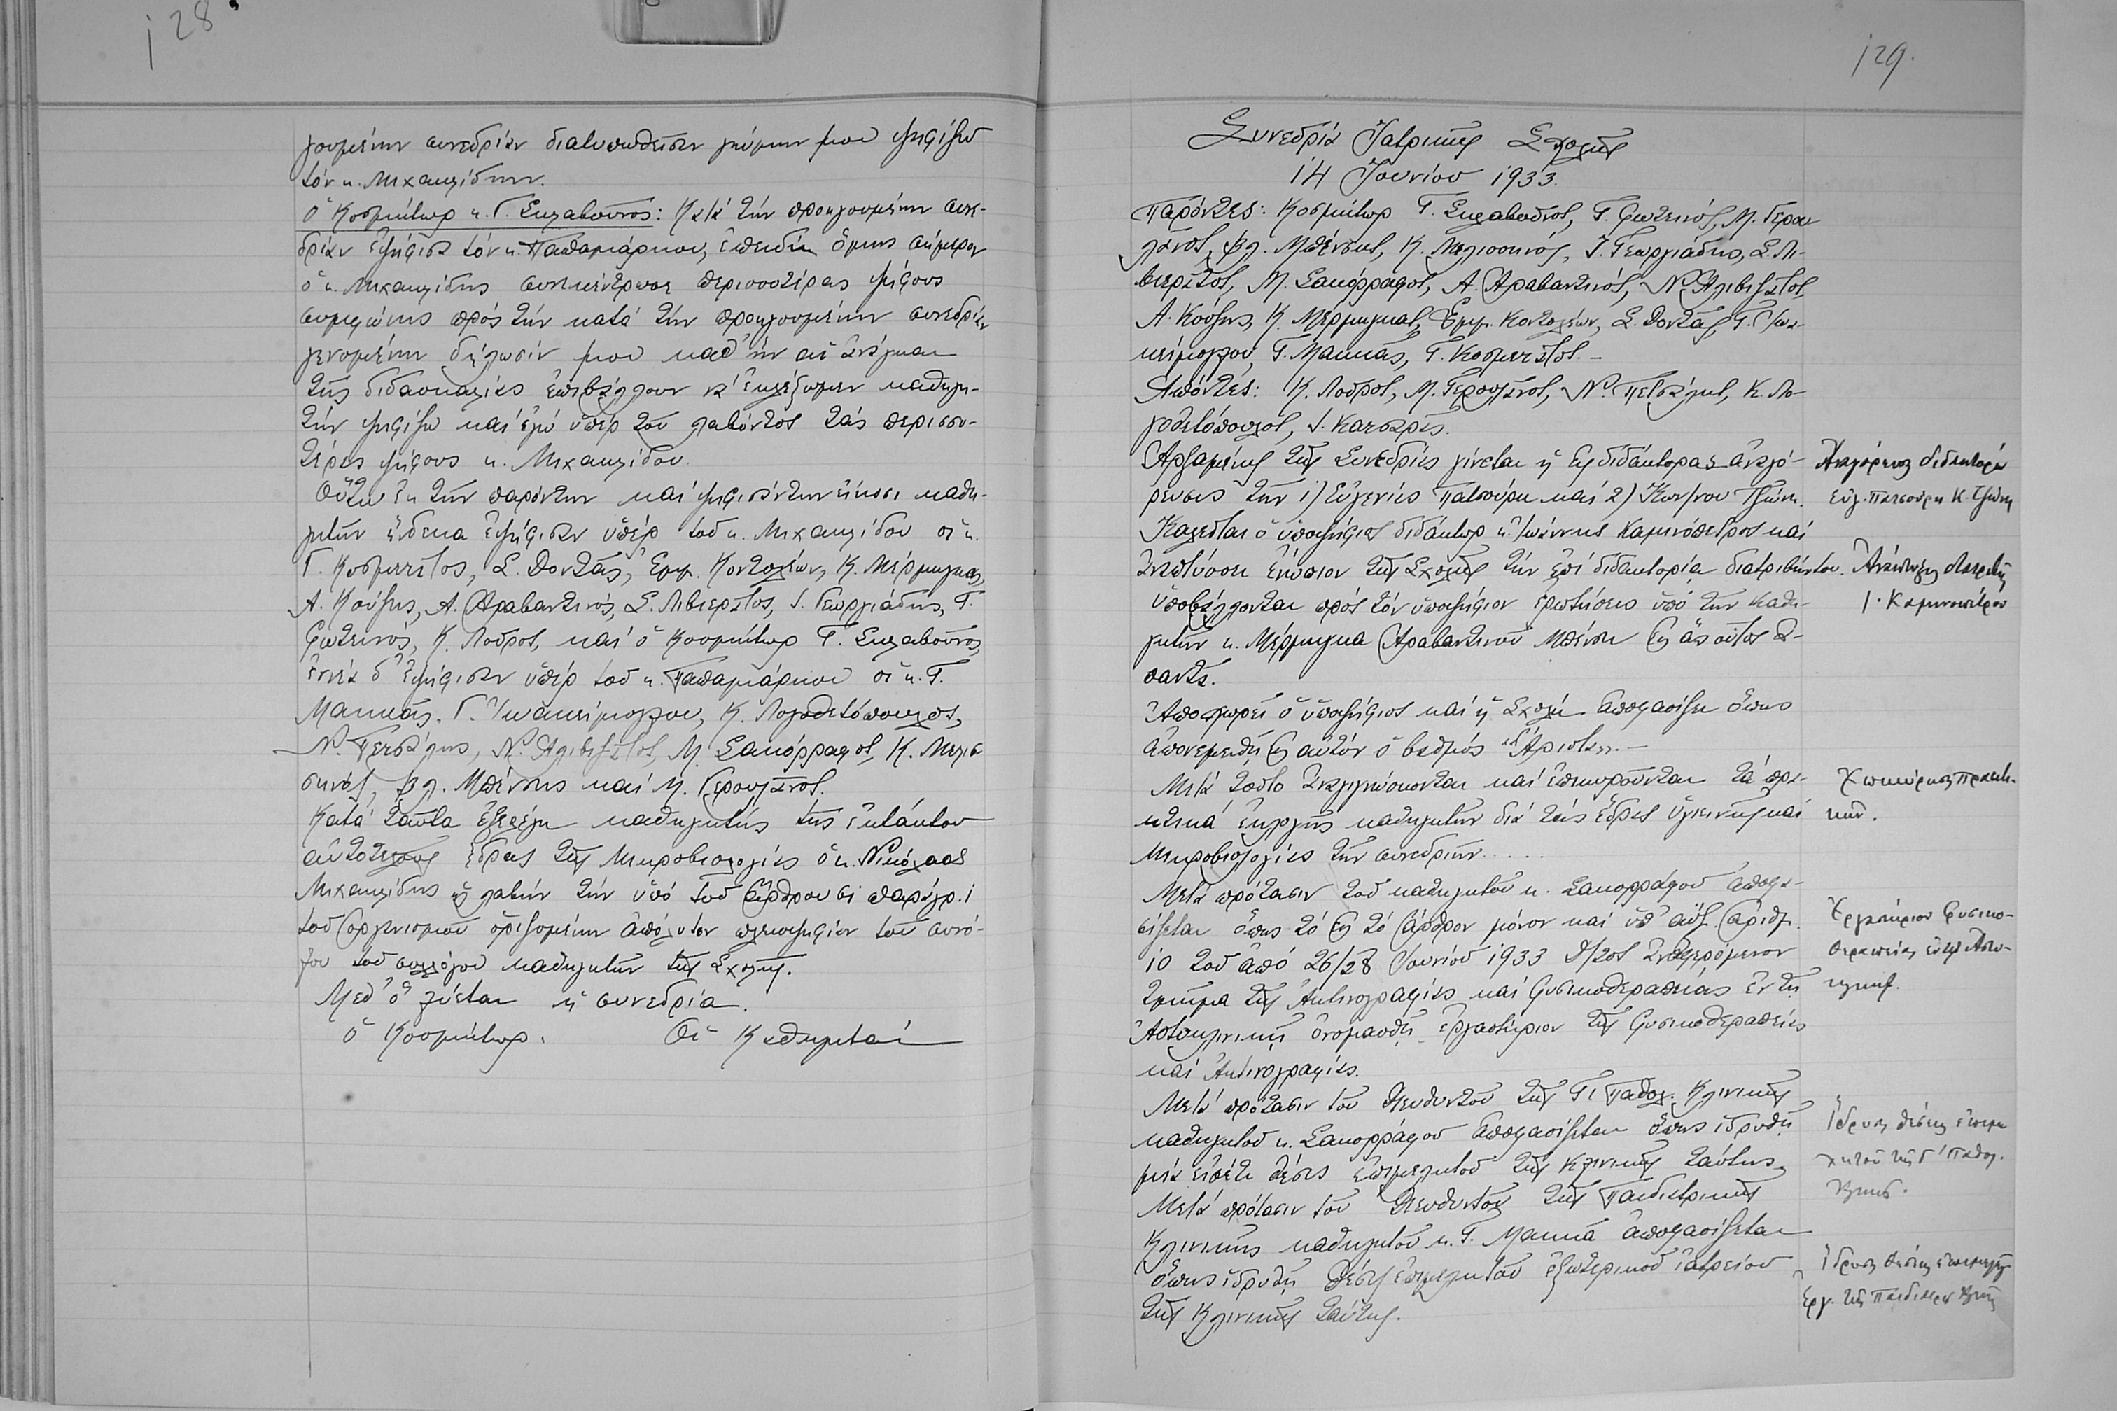 128
γουμένην συνεδρίαν διατυπωθεῖσαν γνώμην μου ψηφίζω
τόν κ. Μιχαηλίδην.
Ὁ Κοσμήτωρ κ. Γ. Σκλαβοῦνος: Κατά τήν προηγουμένην συνε-
δρίαν ἐψήφισα τόν κ. Παπαμάρκου, ἐπειδή ὅμως σήμερον
ὁ κ. Μιχαηλίδης συνεκέντρωσε περισσοτέρας ψήφους
συμφώνως πρός τήν κατά τήν προηγουμένην συνεδρίαν
γενομένην δήλωσίν μου καθ' ἥν αἱ ἀνάγκαι
τῆς διδασκαλίας ἐπιβάλλουν ν' ἐκλέξωμεν καθηγη-
τήν ψηφίζω καί ἐγώ ὑπέρ τοῦ λαβόντος τάς περισσο-
τέρας ψήφους κ. Μιχαηλίδου.
Οὕτω ἐκ τῶν παρόντων καί ψηφισάντων εἴκοσι καθη-
γητῶν ἕνδεκα ἐψήφισαν ὑπέρ τοῦ κ. Μιχαηλίδου οἱ κ.
Γ. Κοσμετάτος, Σ. Δοντάς, Ἐμμ. Κοντολέων, Κ. Μέρμηγκας,
Α. Κούζης, Α. Ἀραβαντινός, Σ. Λιβιεράτος, Ι. Γεωργιάδης, Γ.
Φωτεινός, Κ. Λοῦρος, καί ὁ Κοσμήτωρ Γ. Σκλαβοῦνος,
ἐννέα δ' ἐψήφισαν ὑπέρ τοῦ κ. Παπαμάρκου οἱ κ. Γ.
Μακκᾶς, Γ. Ἰωακείμογλου, Κ. Λογοθετόπουλος,
Ν. Πετσάλης, Ν. Ἀλιβιζάτος, Μ. Σακόρραφος, Κ. Μελισ-
σηνός, Βλ. Μπένσης καί Μ. Γερουλάνος.
Κατά ταῦτα ἐξελέγη καθηγητής τῆς ἐκτάκτου
αὐτοτελοῦς ἕδρας τῆς Μικροβιολογίας ὁ κ. Νικόλαος
Μιχαηλίδης ὡς λαβών τήν ὑπό τοῦ ἄρθρου παράγρ. 1
τοῦ Ὀργανισμοῦ ὁριζομένην ἀπόλυτον πλειοψηφίαν τοῦ συνό-
λου τοῦ συλλόγου καθηγητῶν τῆς Σχολῆς.
Μεθ' ὅ λύεται ἡ συνεδρία.
Ὁ Κοσμήτωρ. Οἱ Καθηγηταί
129.
Συνεδρία Ἰατρικῆς Σχολῆς
14 Ἰουνίου 1933.
Παρόντες: Κοσμήτωρ Γ. Σκλαβοῦνος, Γ. Φωτεινός, Μ. Γερου-
λάνος, Βλ. Μπένσης, Κ. Μελισσηνός, Ι. Γεωργιάδης, Σ. Λι-
βιεράτος, Μ. Σακόρραφος, Α. Ἀραβαντινός, Ν. Ἀλιβιζάτος,
Α. Κούζης, Κ. Μέρμηγκας, Ἐμμ. Κοντολέων, Σ. Δοντάς, Γ. Ἰωα-
κείμογλου, Γ. Μακκᾶς, Γ. Κοσμετάτος.
Ἀπόντες: Κ. Λοῦρος, Μ. Γερουλάνος, Ν. Πετσάλης, Κ. Λο-
γοθετόπουλος, Ι. Κατσαρᾶς.
Ἀρξαμένης τῆς Συνεδρίας γίνεται ἡ εἰς διδάκτορας ἀναγό-
ρευσις τῶν 1) Εὐγενίας Πατσούρη καί 2) Κων/νου Τζώνη.
Καλεῖται ὁ ὑποψήφιος διδάκτωρ κ. Ἰωάννης Καμινόπετρος καί
ἀναπτύσσει ἐνώπιον τῆς Σχολῆς τήν ἐπί διδακτορίᾳ διατριβήν του.
Ὑποβάλλονται πρός τόν ὑποψήφιον ἐρωτήσεις ὑπό τῶν καθη-
γητῶν κ. Μέρμηγκα Ἀραβαντινοῦ Μπένση εἰς ἅς οὗτος ἀ-
παντᾶ.
Ἀποχωρεῖ ὁ ὑποψήφιος καί ἡ Σχολή ἀποφασίζει ὅπως
ἀπονεμηθῇ εἰς αὐτόν ὁ βαθμός "Ἄριστα".
Μετά τοῦτο ἀναγιγνώσκονται καί ἐπικυροῦνται τά πρα-
κτικά ἐκλογῆς καθηγητῶν διά τάς ἕδρας ὑγιεινῆς καί
Μικροβιολογίας τῶν συνεδριῶν.....
Μετά πρότασιν τοῦ καθηγητοῦ κ. Σακορράφου ἀποφα-
σίζεται ὅπως τό εἰς τό ἄρθρον μόνον καί ὑπ' αὔξ. ἀριθμ.
10 τοῦ ἀπό 26/28 Ἰουνίου 1933 Δ/τος ἀναφερόμενον
τμῆμα τῆς Ἀκτινογραφίας καί Φυσικοθεραπείας ἐν τῇ
Ἀστυκλινικῇ ὀνομασθῇ ἐργαστήριον τῆς Φυσικοθεραπείας
καί Ἀκτινογραφίας.
Μετά πρότασιν τοῦ Διευθυντοῦ τῆς Γ' Παθολ. Κλινικῆς
καθηγητοῦ κ. Σακορράφου ἀποφασίζεται ὅπως ἱδρυθῇ
μία εἰσέτι θέσις ἐπιμελητοῦ τῆς Κλινικῆς ταύτης.
Μετά πρότασιν τοῦ Διευθυντοῦ τῆς Παιδιατρικῆς
Κλινικῆς καθηγητοῦ κ. Γ. Μακκᾶ ἀποφασίζεται
ὅπως ἱδρυθῇ θέσις ἐπιμελητοῦ ἐξωτερικοῦ ἰατρείου
τῆς Κλινικῆς ταύτης.
Ἀναγόρευσις διδακτόρων
Εὐγ. Πατσούρη Κ. Τζώνη
Ἀνάπτυξις διατριβῆς
Ι. Καμινοπέτρου
Ἐπικύρωσις πρακτι-
κῶν.
Ἐργαστήριον Φυσικο-
θεραπείας ἐν τῇ Ἀστυ-
κλινικῇ.
Ἵδρυσις θέσεως ἐπιμε-
λητοῦ τῆς Γ' Παθολ.
Κλινικ.
Ἵδρυσις θέσεως ἐπιμελητοῦ
τῆς Παιδιατρ. Κλινικῆς